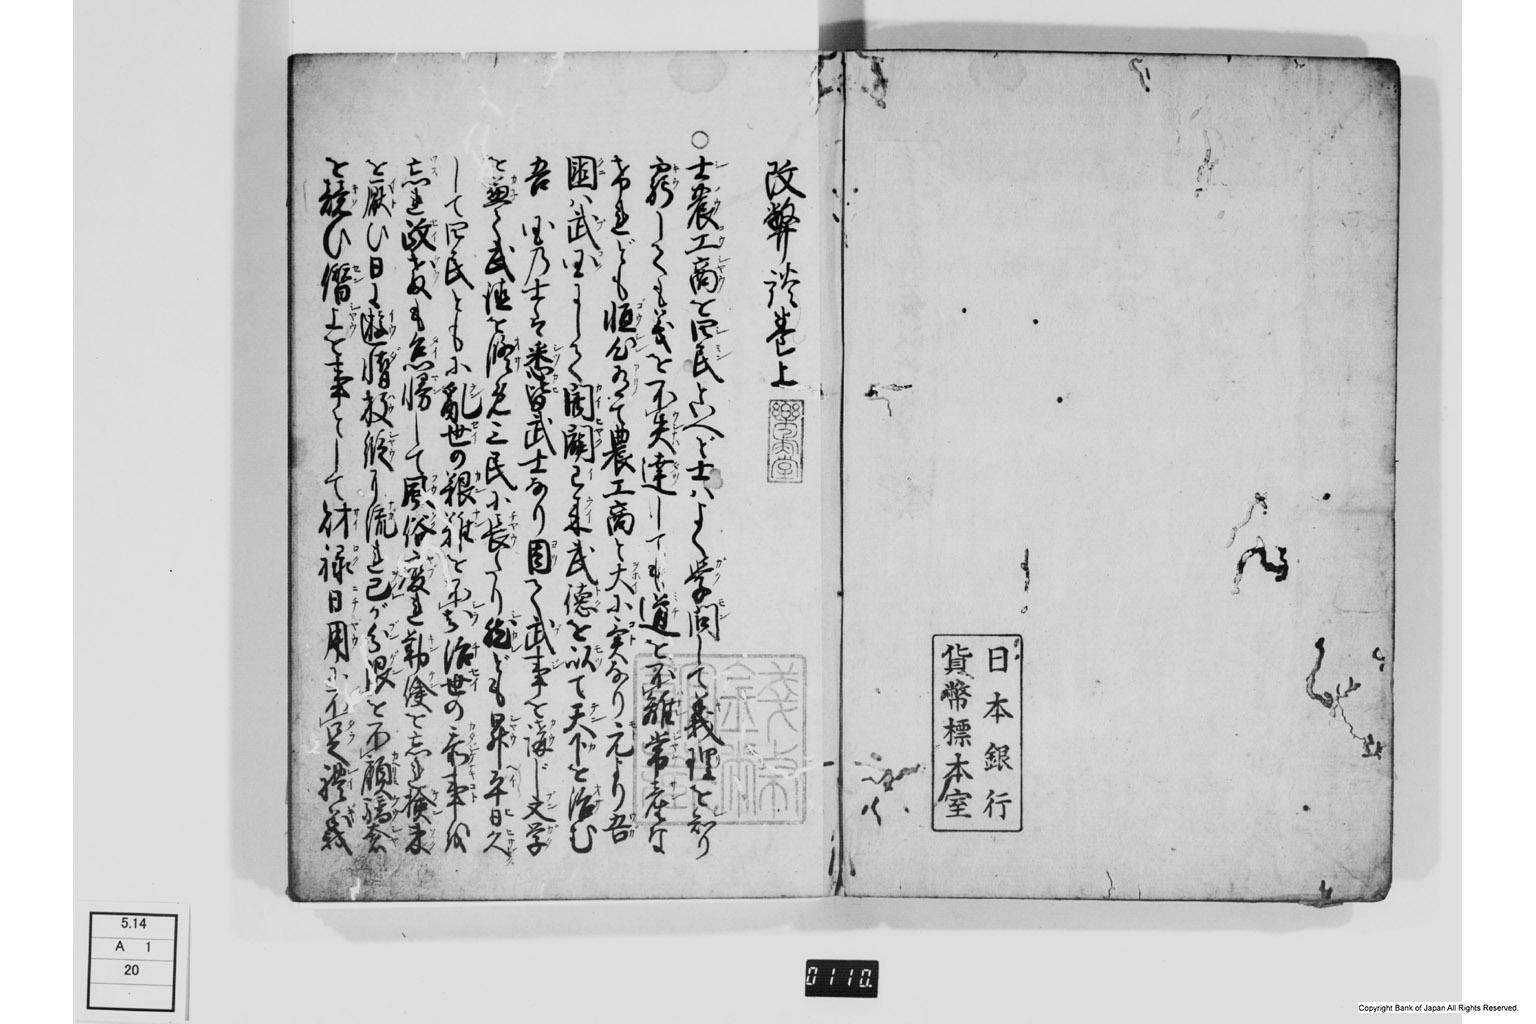 日本銀行
貨幣標本室
改弊談巻上
○士農工商を四民といへど士ハよく学問して義理を知り
窮しても義を不失達しても道を不離常産な
けれども恒心有て農工商と大に実なり元より吾
国ハ武国にして開闢已来武徳を以て天下を治む
吾国の士は悉皆武士なり因て武事を講じ文学
を兼て武徳を修め三民に長たり然ども昇平日久
して四民ともに乱世の艱難を不知治世の
忘れ政教も怠慢して風俗廃れ勤倹を忘れ
を厭ひ日に遊惰放縦に流れ己が分限を不顧驕奢
を競ひ僭上を事として財禄日用に不足禮義
5.14
A 1
20
0110.
Copyright Bank of Japan All Rights Reserved.